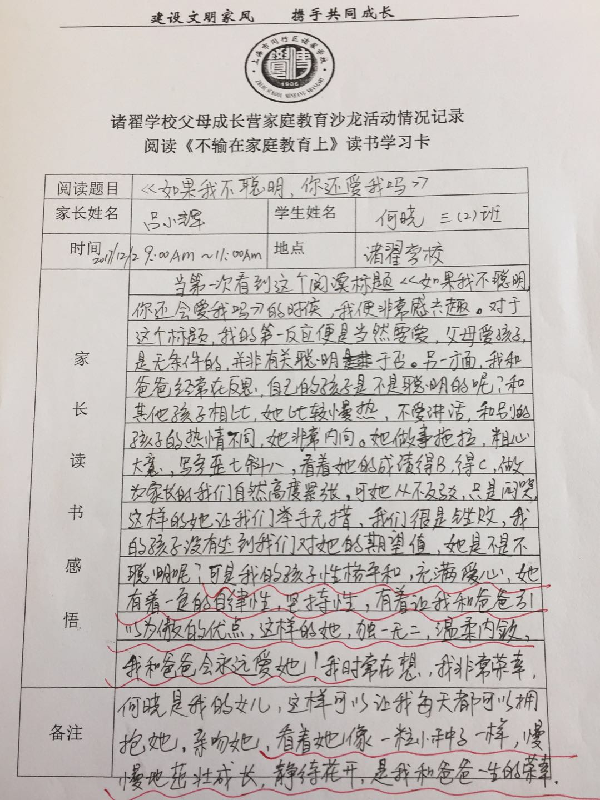 建设文明家风 携手共同成长
上海市闵行区诸翟学校
1905
诸翟学校父母成长营家庭教育沙龙活动情况记录
阅读《不输在家庭教育上》读书学习卡
阅读题目 《如果我不聪明,你还爱我吗》
家长姓名 吕小 学生姓名 何晓 三(2)班
时间 2017/12/2 9:00AM~11:00AM 地点 诸翟学校
家长读书感悟
当第一次看到这个阅读标题《如果我不聪明
你还会爱我吗》的时候,我便非常感兴趣。对于
这个标题,我的第一反应便是当然要爱,父母爱孩子,
是无条件的,并非有关聪明于否。另一方面,我和
爸爸经常在反思,自己的孩子是不是聪明的呢?和
其他孩子相比,她比较慢热,不爱讲话,和别的
孩子的热情不同,她非常内向。她做事拖拉,粗心
大意,写字歪七斜八,看着她的成绩得B,得C,做
为家长的我们自然高度紧张,可她从不反驳,只是闷哭,
这样的她让我们举手无措,我们很是挫败,我
的孩子没有达到我们对她的期望值,她是不是不
聪明呢?可是我的孩子性格平和,充满爱心,她
有着一定的自律性,坚持性,有着让我和爸爸引
以为傲的优点,这样的她,独一无二,温柔内敛,
我和爸爸会永远爱她!我时常在想,我非常荣幸,
备注
何晓是我的女儿,这样可以让我每天都可以拥
抱她,亲吻她,看着她像一粒小种子一样,慢
慢地茁壮成长,静待花开,是我和爸爸一生的荣幸.